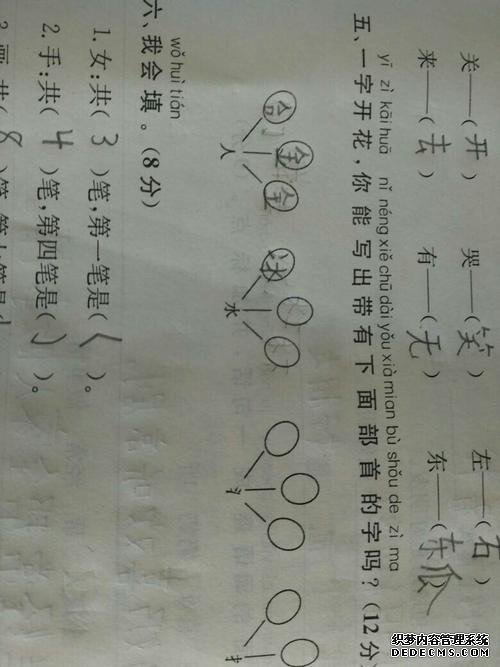 关——(开) 哭——(笑) 左——(右)
来——(去) 有——(无) 东——(东瓜)
yī zì kāi huā nǐ néng xiě chū dài yǒu xià mian bù shǒu de zì ma
五、一字开花,你能写出带有下面部首的字吗?(12分
合 全 全 冰
人 水 扌
wǒ huì tián
六、我会填。(8分)
1. 女:共(3)笔,第一笔是(く)。
2. 手:共(4)笔,第四笔是(亅)。
8)笔
织梦内容管理系统
DEDECMS.COM